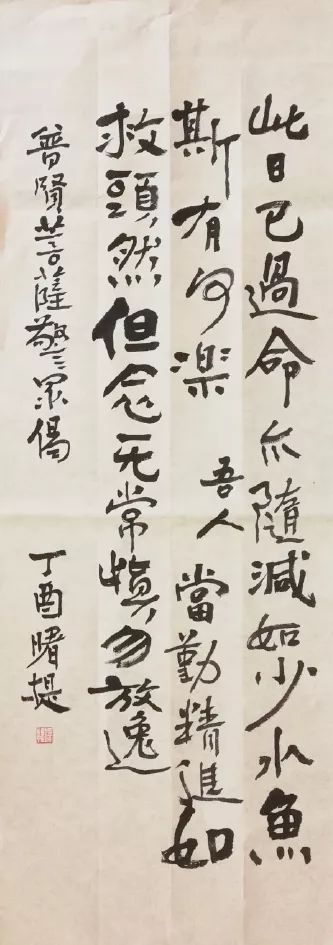 此日已過命亦隨減如少水魚
斯有何楽吾人當勤精進如
救頭然但念无常慎勿放逸
普賢菩薩警眾偈 丁酉曙提